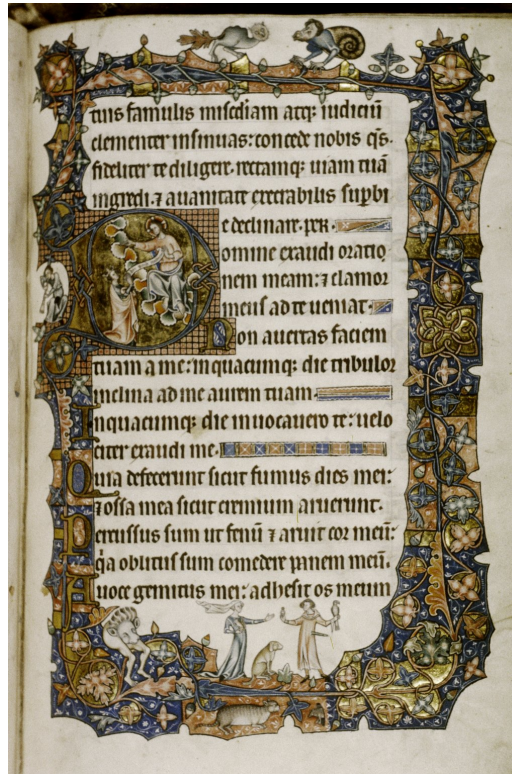 tuis famulis misc̄diam atq; iudiciū
clementer insinuas: concede nobis q̄s.
fideliter te diligere. rectamq; uiam tuā
ingredi. ⁊ a uanitate execrabilis sup̄bi
e declinare. per.
Domine exaudi oratio
nem meam: ⁊ clamor
meus ad te ueniat.
Non auertas faciem
tuam a me: in quacumq; die tribulor
inclina ad me aurem tuam.
In quacumq; die inuocauero te: uelo
citer exaudi me.
Quia defecerunt sicut fumus dies mei:
⁊ ossa mea sicut cremium aruerunt.
Percussus sum ut fenū ⁊ aruit cor meū:
q̇a oblitus sum comedere panem meū.
A uoce gemitus mei: adhesit os meum